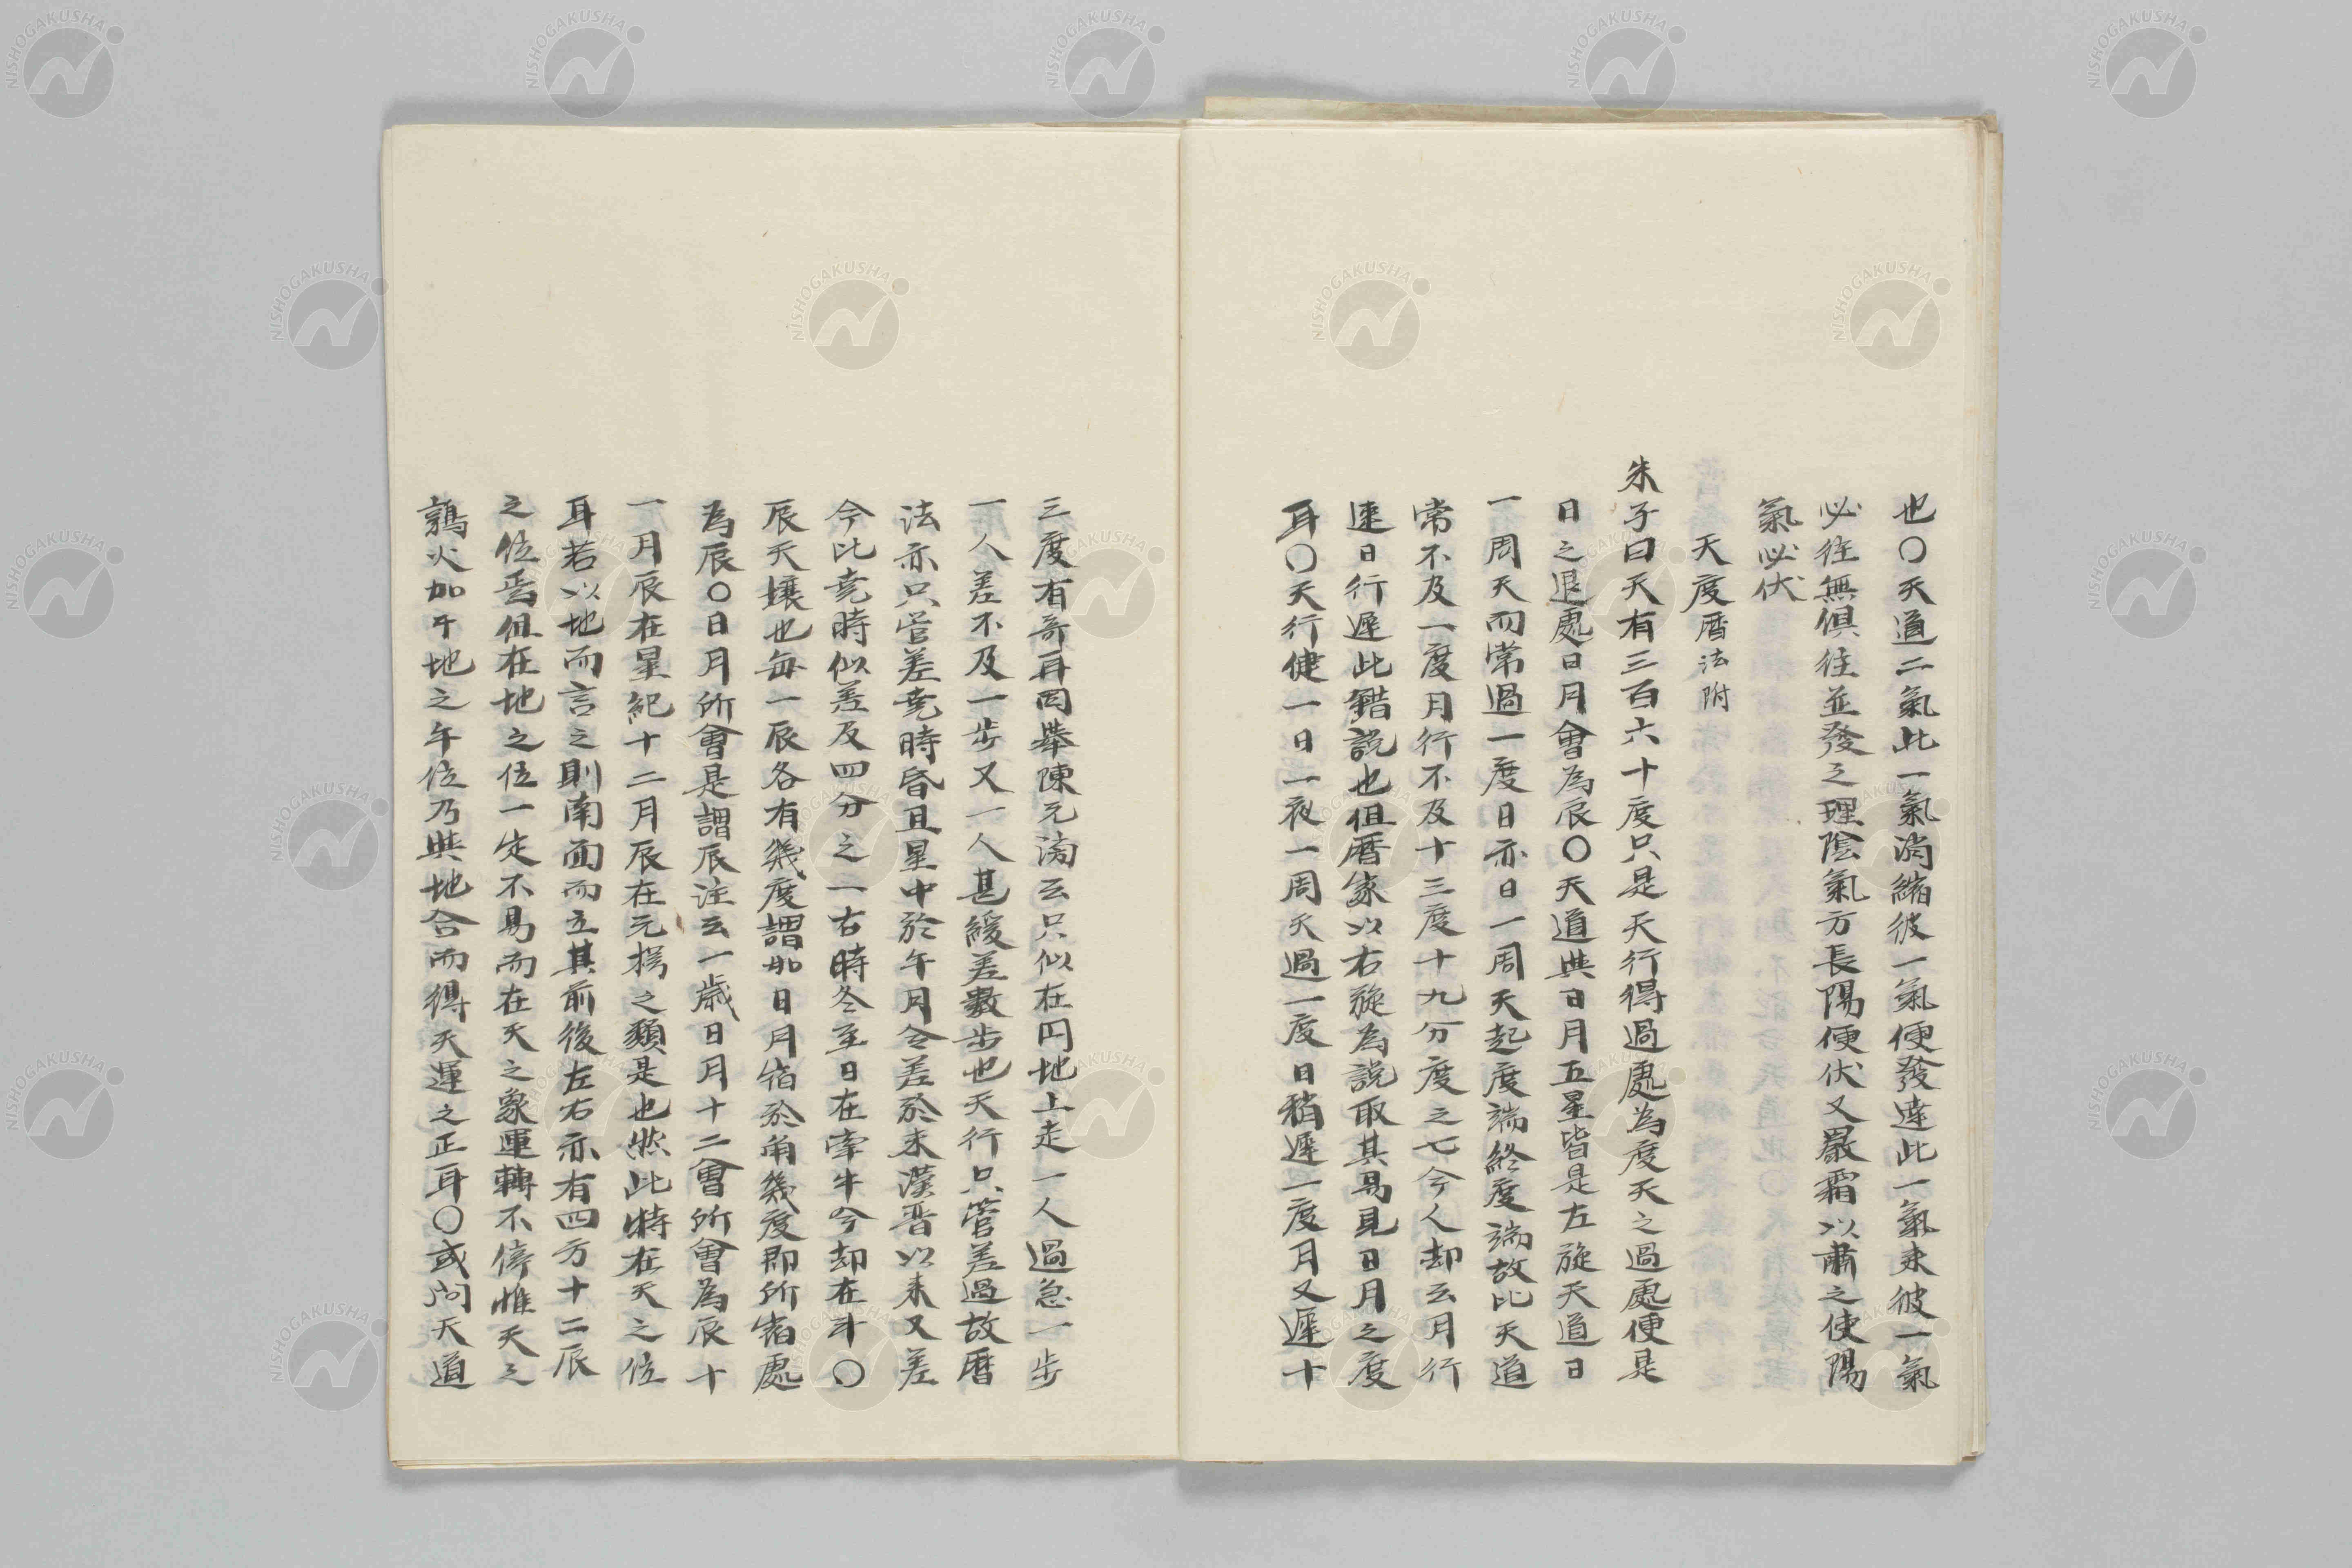 也〇天道二氣此一氣消縮彼一氣便發達此一氣来彼一氣
必往無俱往並發之理陰氣方長陽便伏又嚴霜以肅之使陽
氣必伏
天度暦法附
朱子曰天有三百六十度只是天行得過處為度天之過處便是
日之退處日月會為辰〇天道與日月五星皆是左旋天道日
一周天而常過一度日亦日一周天起度端終度端故比天道
常不及一度月行不及十三度十九分度之七今人却云月行
速日行遲此錯説也但暦家以右旋為説取其易見日月之度
耳〇天行健一日一夜一周天過一度日稍遲一度月又遲十
三度有奇耳因舉陳元滂云只似在円地上走一人過急一步
一人差不及一步又一人甚緩差數步也天行只管差過故暦
法亦只管差堯時昏旦星中於午月令差於未漢晋以来又差
今比堯時似差及四分之一古時冬至日在牽牛今却在斗〇
辰天壤也每一辰各有幾度謂如日月宿於角幾度即所宿處
為辰〇日月所會是謂辰注云一歳日月十二會所會為辰十
一月辰在星紀十二月辰在元枵之類是也然此特在天之位
耳若以地而言之則南面而立其前後左右亦有四方十二辰
之位焉但在地之位一定不易而在天之象運轉不停惟天之
鶉火加于地之午位乃與地合而得天運之正耳〇或問天道
NISHOGAKUSHA